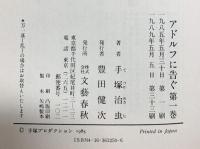 アドルフに告ぐ 第一巻
一九八五年五月三十日 第一刷
一九八九年五月五日
著者 手塚治虫
発行者 豊田健次
発行所 株式会社 文藝春秋
東京都千代田区紀尾井町三
印刷 凸版印刷
万一落丁乱丁の場合はお取替えいたします
© 手塚プロダクション 1985
Printed in Japan